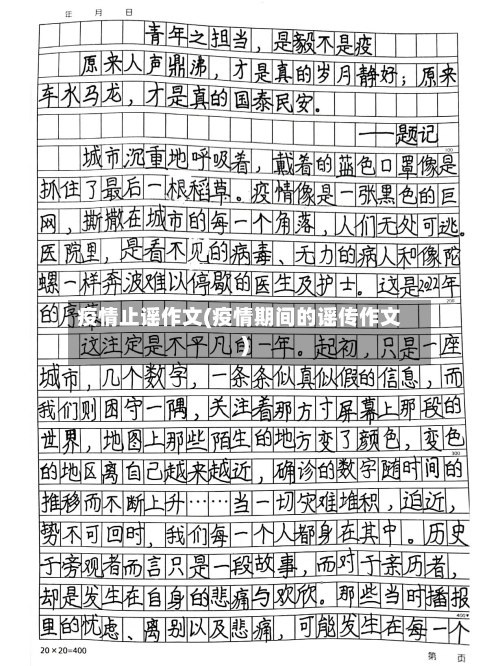 年 月 日
青年之担当，是毅不是疫
原来人声鼎沸，才是真的岁月静好；原来
车水马龙，才是真的国泰民安。
——题记
100
城市沉重地呼吸着，戴着的蓝色口罩像是
抓住了最后一根稻草。疫情像是一张黑色的巨
网，撕撒在城市的每一个角落，人们无处可逃。
医院里，是看不见的病毒、无力的病人和像陀
螺一样奔波难以停歇的医生及护士。这是2022年
200
的序幕
疫情止谣作文(疫情期间的谣传作文
)
这注定是不平凡的一年。起初，只是一座
城市，几个数字，一条条似真似假的信息，而
我们则困守一隅，关注着那方寸屏幕上那段的
世界，地图上那些陌生的地方变了颜色，变色
300
的地区离自己越来越近，确诊的数字随时间的
推移而不断上升……当一切灾难堆积，迫近，
势不可回时，我们每一个人都身在其中。历史
于旁观者而言只是一段故事，而对于亲历者，
却是发生在自身的悲痛与欢欣。那些当时播报
400
里的忧虑、离别以及悲痛，可能发生在每一个
20×20=400
第 页